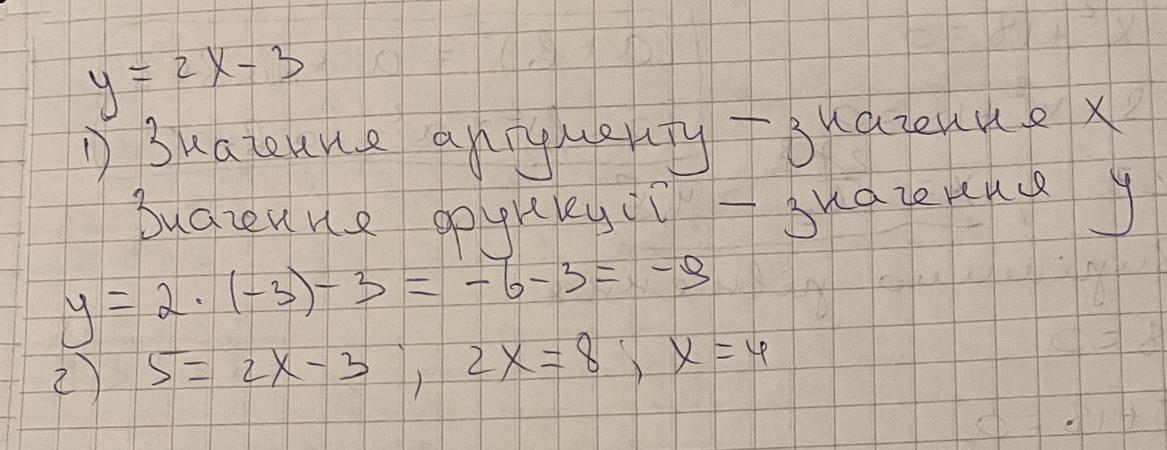 y = 2x - 3
1) Значення аргументу - значення x
Значення функції - значення y
y = 2 · (-3) - 3 = -6 - 3 = -9
2) 5 = 2x - 3 ; 2x = 8 ; x = 4